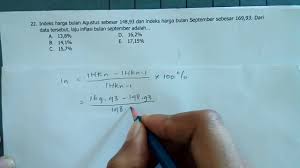 22. Indeks harga bulan Agustus sebesar 148,93 dan indeks harga bulan September sebesar 169,93. Dari
data tersebut, laju inflasi bulan September adalah...
A. 13,8% D. 16,2%
B. 14,1% E. 17,15%
C. 15,7%
In = IHKn - IHKn-1 × 100%
IHKn-1
= 169.93 - 148.93
148.